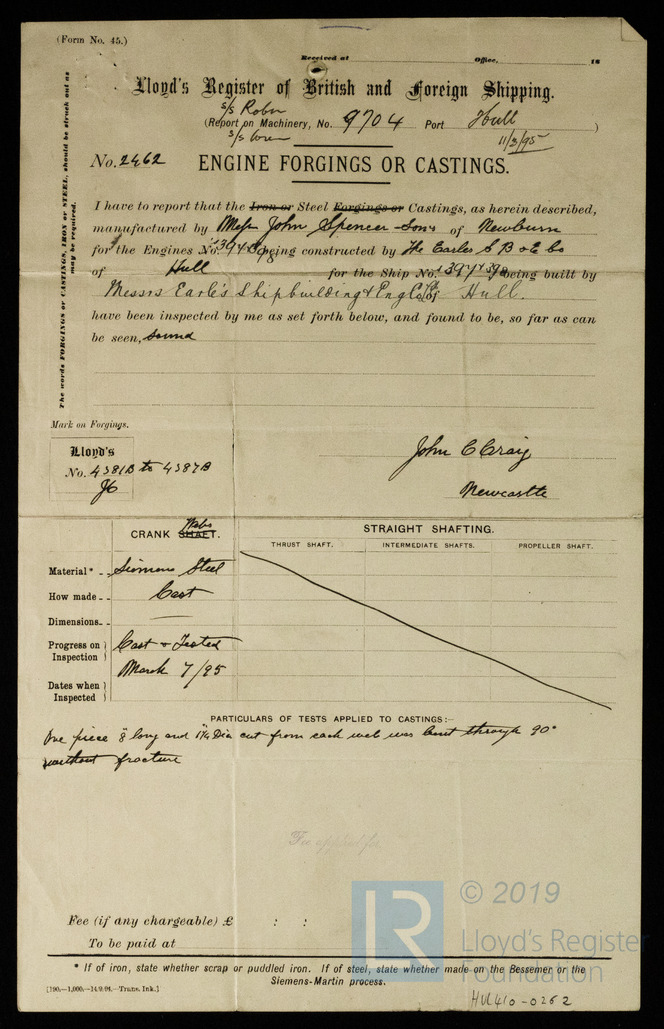 (Form No. 45.)
Received at Office, 18
Lloyd's Register of British and Foreign Shipping.
S/S Robin
(Report on Machinery, No. 9704 Port Hull )
S/S Wren
11/3/95
No. 2462 ENGINE FORGINGS OR CASTINGS.
The words FORGINGS or CASTINGS, IRON or STEEL, should be struck out as may be required.
I have to report that the Iron or Steel Forgings or Castings, as herein described,
manufactured by Messrs John Spencer & Sons of Newburn
for the Engines No. 397 & 398 being constructed by The Earles S B & E Co
of Hull for the Ship No. 397 & 398 being built by
Messrs Earle's Shipbuilding & Eng Co Ld of Hull.
have been inspected by me as set forth below, and found to be, so far as can
be seen, sound
Mark on Forgings.
Lloyd's
No. 4381B to 4387B
JC
John C Craig
Newcastle
CRANK SHAFT. Webs
STRAIGHT SHAFTING.
THRUST SHAFT. INTERMEDIATE SHAFTS. PROPELLER SHAFT.
Material* Siemens Steel
How made Cast
Dimensions
Progress on Inspection Cast & Tested
March 7/95
Dates when Inspected
PARTICULARS OF TESTS APPLIED TO CASTINGS:—
One piece 8" long and 1 1/4 Dia cut from each web was bent through 90°
without fracture
Fee applied for
Fee (if any chargeable) £ : :
To be paid at
* If of iron, state whether scrap or puddled iron. If of steel, state whether made on the Bessemer or the
Siemens-Martin process.
[190.—1,000.—14.9.94.—Trans. Ink.]
LR © 2019
Lloyd's Register
Foundation
HUL410-0262